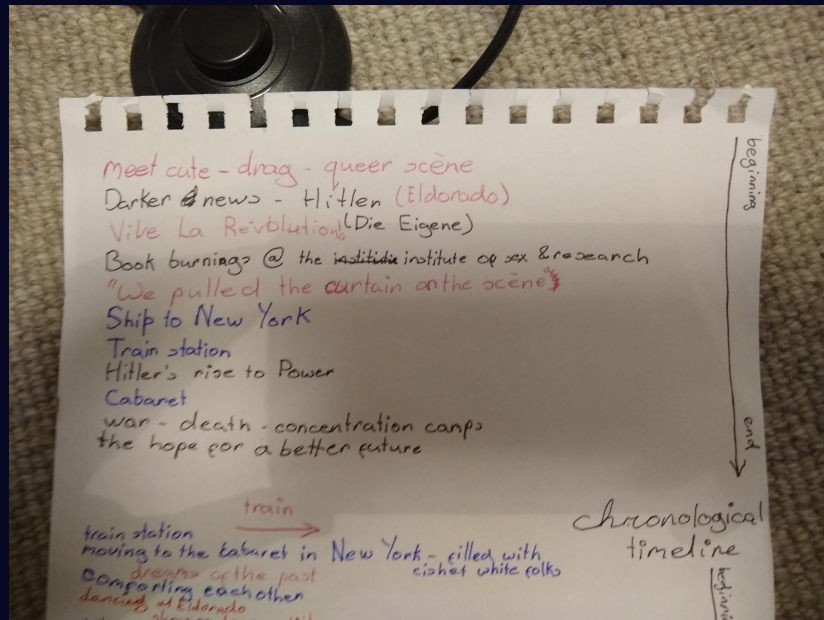 meet cute - drag - queer scène
Darker news - Hitler (Eldorado)
Vive La Revolution! (Die Eigene)
Book burnings @ the institute of sex & research
"We pulled the curtain on the scène"
Ship to New York
Train station
Hitler's rise to Power
Cabaret
war - death - concentration camps
the hope for a better future
beginning
end
chronological
timeline
train
train station
moving to the cabaret in New York - filled with
cishet white folks
dreams of the past
comforting eachother
dancing at Eldorado